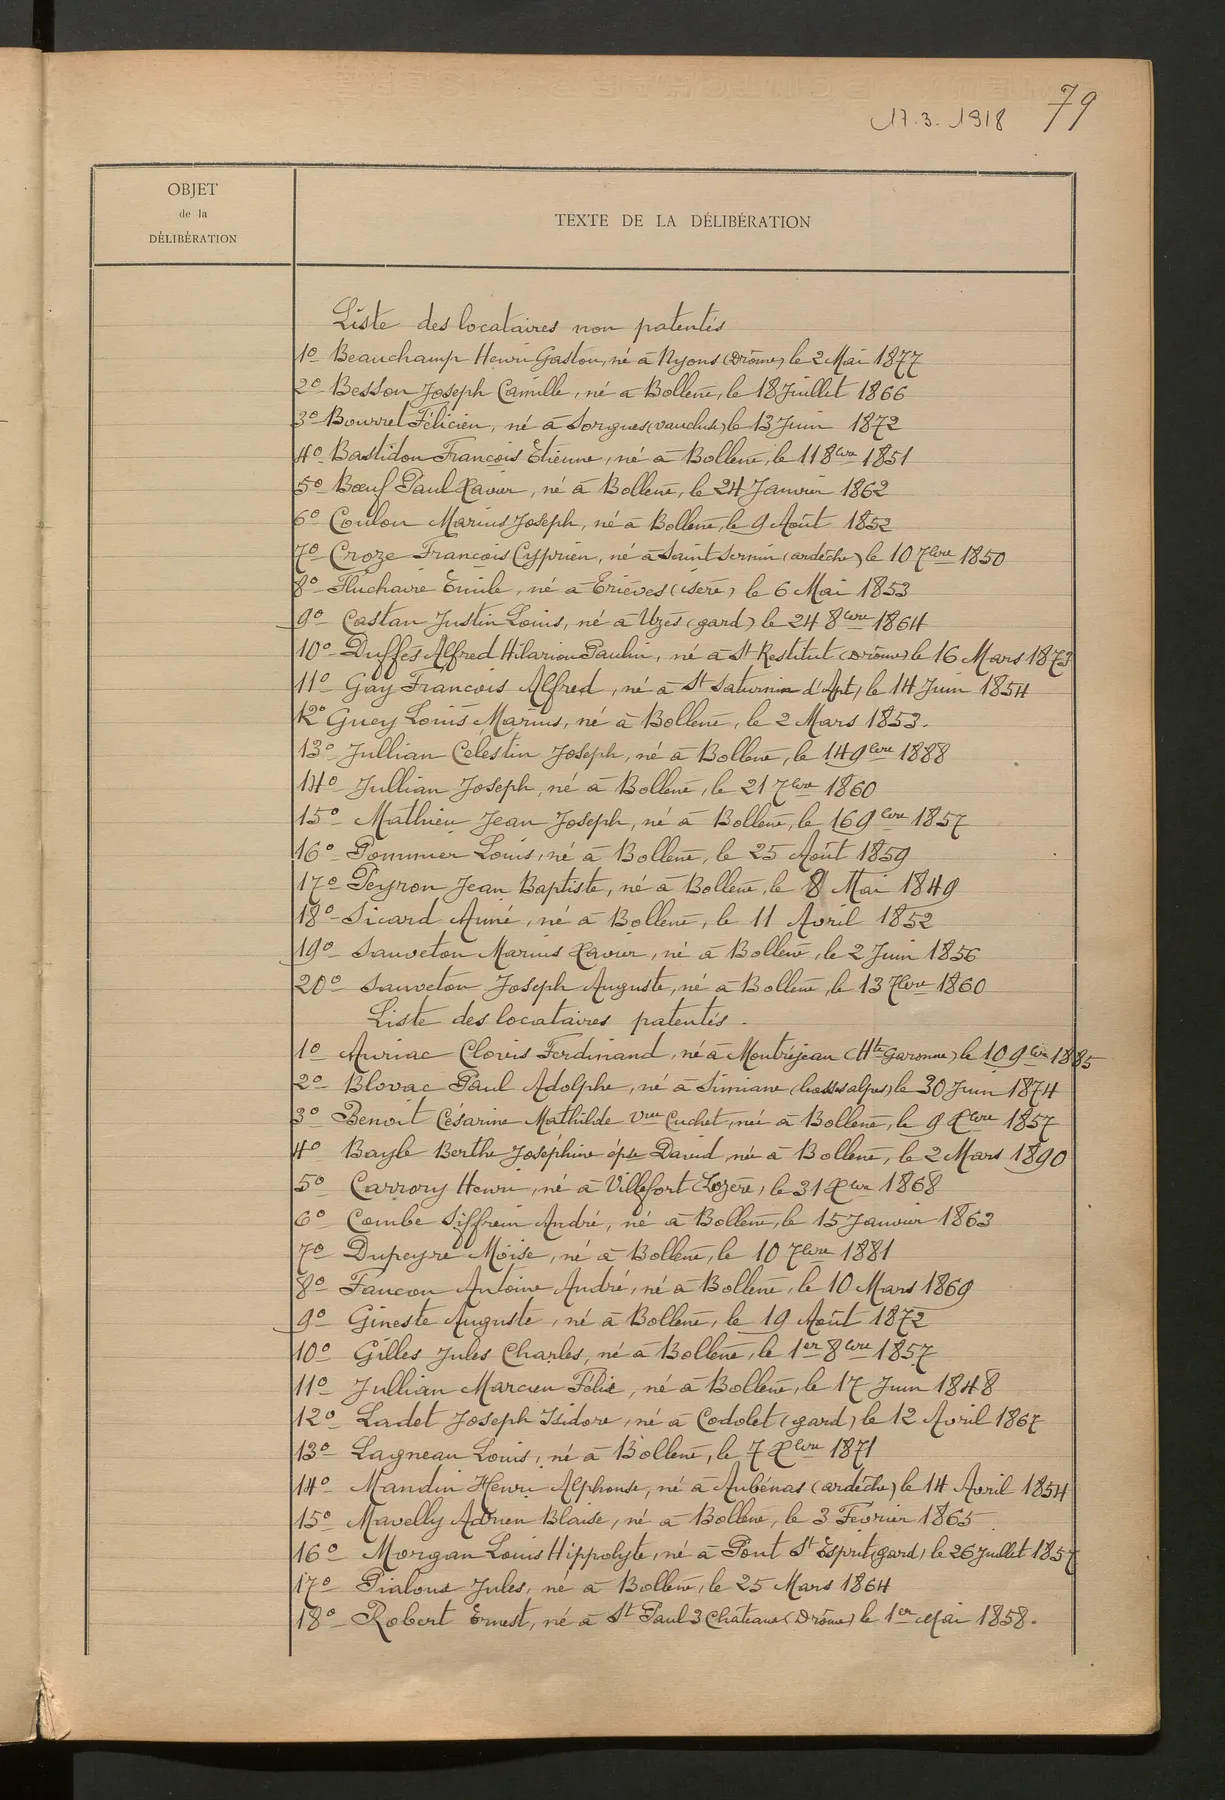 79
17.3.1918
OBJET
de la
DÉLIBÉRATION
TEXTE DE LA DÉLIBÉRATION
Liste des locataires non patentés
1o Beauchamp Henri Gaston, né à Nyons (Drôme) le 2 Mai 1877
2o Besson Joseph Camille, né à Bollène, le 18 Juillet 1866
3o Bourret Félicien, né à Sorgues (Vaucluse) le 13 Juin 1872
4o Bastidon François Etienne, né à Bollène, le 11 8bre 1851
5o Bœuf Paul Xavier, né à Bollène, le 24 Janvier 1862
6o Coulon Marius Joseph, né à Bollène, le 9 Août 1852
7o Croze François Cyprien, né à Saint Sernin (ardèche) le 10 7bre 1850
8o Fluchaire Emile, né à Trièves (isère) le 6 Mai 1853
9o Castan Justin Louis, né à Uzès (gard) le 24 8bre 1864
10o Duffès Alfred Hilarion Paulin, né à St Restitut (Drôme) le 16 Mars 1873
11o Gay François Alfred, né à St Saturnin d'Apt, le 14 Juin 1854
12o Guey Louis Marius, né à Bollène, le 2 Mars 1853.
13o Jullian Célestin Joseph, né à Bollène, le 14 9bre 1888
14o Jullian Joseph, né à Bollène, le 21 7bre 1860
15o Mathieu Jean Joseph, né à Bollène, le 16 9bre 1857
16o Pommier Louis, né à Bollène, le 25 Août 1859
17o Peyron Jean Baptiste, né à Bollène, le 8 Mai 1849
18o Sicard Aimé, né à Bollène, le 11 Avril 1852
19o Sauveton Marius Xavier, né à Bollène, le 2 Juin 1856
20o Sauveton Joseph Auguste, né à Bollène, le 13 7bre 1860
Liste des locataires patentés.
1o Auriac Clovis Ferdinand, né à Montréjeau (Hte Garonne) le 10 9bre 1885
2o Blovac Paul Adolphe, né à Simiane (basses alpes) le 30 Juin 1874
3o Benoit Césarine Mathilde Vve Cuchet, née à Bollène, le 9 Xbre 1857
4o Bayle Berthe Joséphine épse David, née à Bollène, le 2 Mars 1890
5o Carrory Henri, né à Villefort (Lozère, le 31 Xbre 1868
6o Combe Siffrein André, né à Bollène, le 15 Janvier 1863
7o Dupeyre Moïse, né à Bollène, le 10 7bre 1881
8o Faucon Antoine André, né à Bollène, le 10 Mars 1869
9o Gineste Auguste, né à Bollène, le 19 Août 1872
10o Gilles Jules Charles, né à Bollène, le 1er 8bre 1857
11o Jullian Marcien Félix, né à Bollène, le 17 Juin 1848
12o Ladet Joseph Isidore, né à Codolet (gard) le 12 Avril 1867
13o Lagneau Louis, né à Bollène, le 7 Xbre 1871
14o Mandin Henri Alphonse, né à Aubénas (ardèche) le 14 Avril 1854
15o Mavelly Adrien Blaise, né à Bollène, le 3 Février 1865
16o Morgan Louis Hippolyte, né à Pont St Esprit (gard) le 26 Juillet 1857
17o Pialous Jules, né à Bollène, le 25 Mars 1864
18o Robert Ernest, né à St Paul 3 Châteaux (Drôme) le 1er Mai 1858.